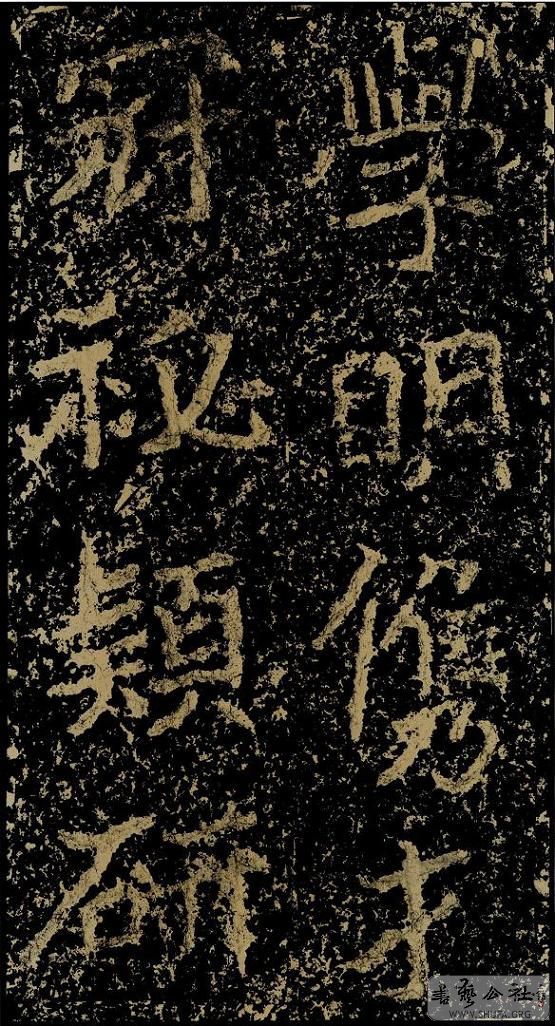 學明儁才
冠秘穎研
書藝公社
WWW.SHUFA.ORG